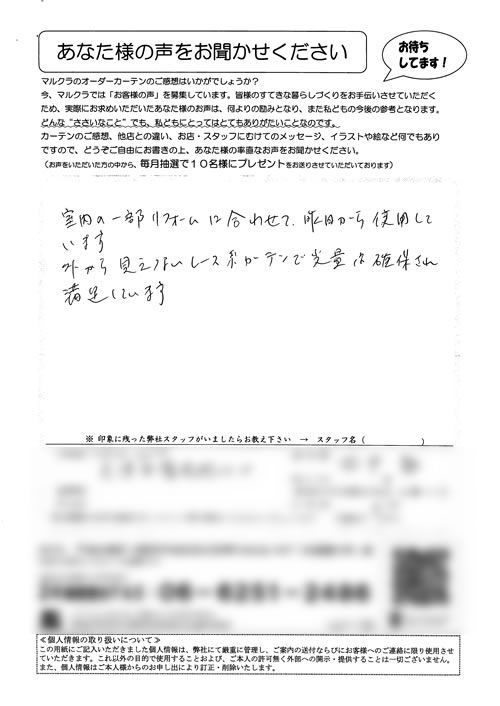 あなた様の声をお聞かせください
お待ち
してます！
マルクラのオーダーカーテンのご感想はいかがでしょうか？
今、マルクラでは「お客様の声」を募集しています。皆様のすてきな暮らしづくりをお手伝いさせていただく
ため、実際にお求めいただいたあなた様のお声は、何よりの励みとなり、また私どもの今後の参考となります。
どんな“ささいなこと”でも、私どもにとってはとてもありがたいことなのです。
カーテンのご感想、他店との違い、お店・スタッフにむけてのメッセージ、イラストや絵など何でもあり
ですので、どうぞご自由にお書きの上、あなた様の率直なお声をお聞かせください。
（お声をいただいた方の中から、毎月抽選で１０名様にプレゼントをお送りさせていただいております）
室内の一部リフォームに合わせて、昨日から使用して
います
外から見えないレースのカーテンで光量は確保され
満足しています
※ 印象に残った弊社スタッフがいましたらお教え下さい → スタッフ名（ ）
06-6251-2486
≪個人情報の取り扱いについて≫
この用紙にご記入いただきました個人情報は、弊社にて厳重に管理し、ご案内の送付ならびにお客様へのご連絡に限り使用させ
ていただきます。これ以外の目的で使用することおよび、ご本人の許可無く外部への開示・提供することは一切ございません。
また、個人情報はご本人様からのお申し出により訂正・削除いたします。